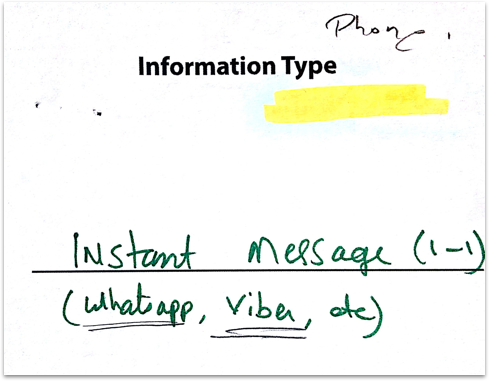 Phone.
Information Type
Instant Message (1-1)
(Whatsapp, Viber, etc)